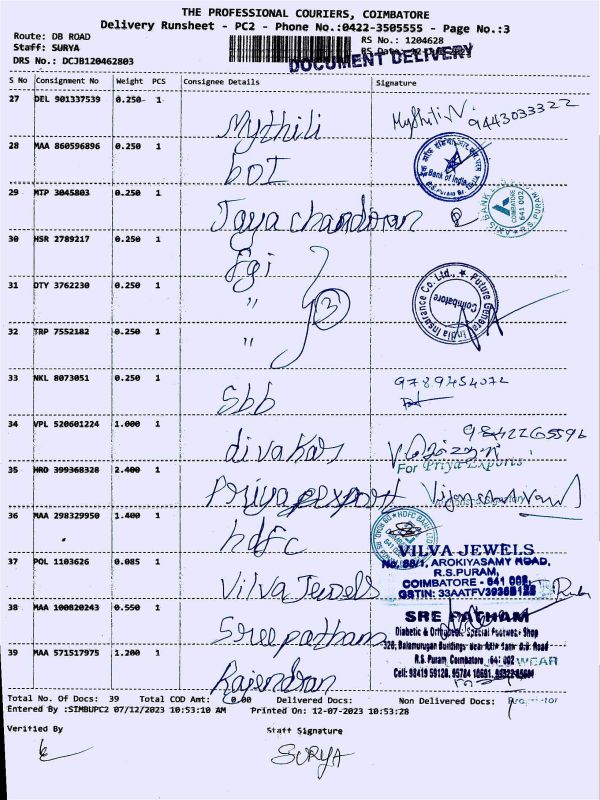 THE PROFESSIONAL COURIERS, COIMBATORE
Delivery Runsheet - PC2 - Phone No.:0422-3505555 - Page No.:3
Route: DB ROAD
RS No.: 1204628
Staff: SURYA
DOCUMENT DELIVERY
DRS No.: DCJB120462803
S No Consignment No Weight PCS Consignee Details Signature
27 DEL 901337539 0.250 1 Mythili Mythili.N 9443033322
28 MAA 860596896 0.250 1 boI Bank of India
29 MTP 3045803 0.250 1 Jaya chandran AXIS BANK COIMBATORE 641 002 R.S PURAM
30 HSR 2789217 0.250 1 Fgi
31 DTY 3762230 0.250 1 " 3 Future Generali India Insurance Co. Ltd., Coimbatore
32 TRP 7552182 0.250 1 "
33 NKL 8073051 0.250 1 Sbb 9789454072
34 VPL 520601224 1.000 1 divakar 9842265596
For Priya Exports
35 HRD 399368328 2.400 1 Priya export
36 MAA 298329950 1.400 1 hdfc HDFC BANK LTD
VILVA JEWELS
No. 88/1, AROKIYASAMY ROAD,
R.S.PURAM,
37 POL 1103626 0.085 1 Vilva Jewels COIMBATORE - 641 002
38 MAA 100820243 0.550 1 Sree patham SRE PATHAM
Diabetic & Orthopedic Special Footwear Shop
R.S. Puram, Coimbatore 641 002
39 MAA 571517975 1.200 1 Rajendran
Total No. Of Docs: 39 Total COD Amt: 0.00 Delivered Docs: Non Delivered Docs:
Entered By :SIMBUPC2 07/12/2023 10:53:10 AM Printed On: 12-07-2023 10:53:28
Verified By Staff Signature
SURYA